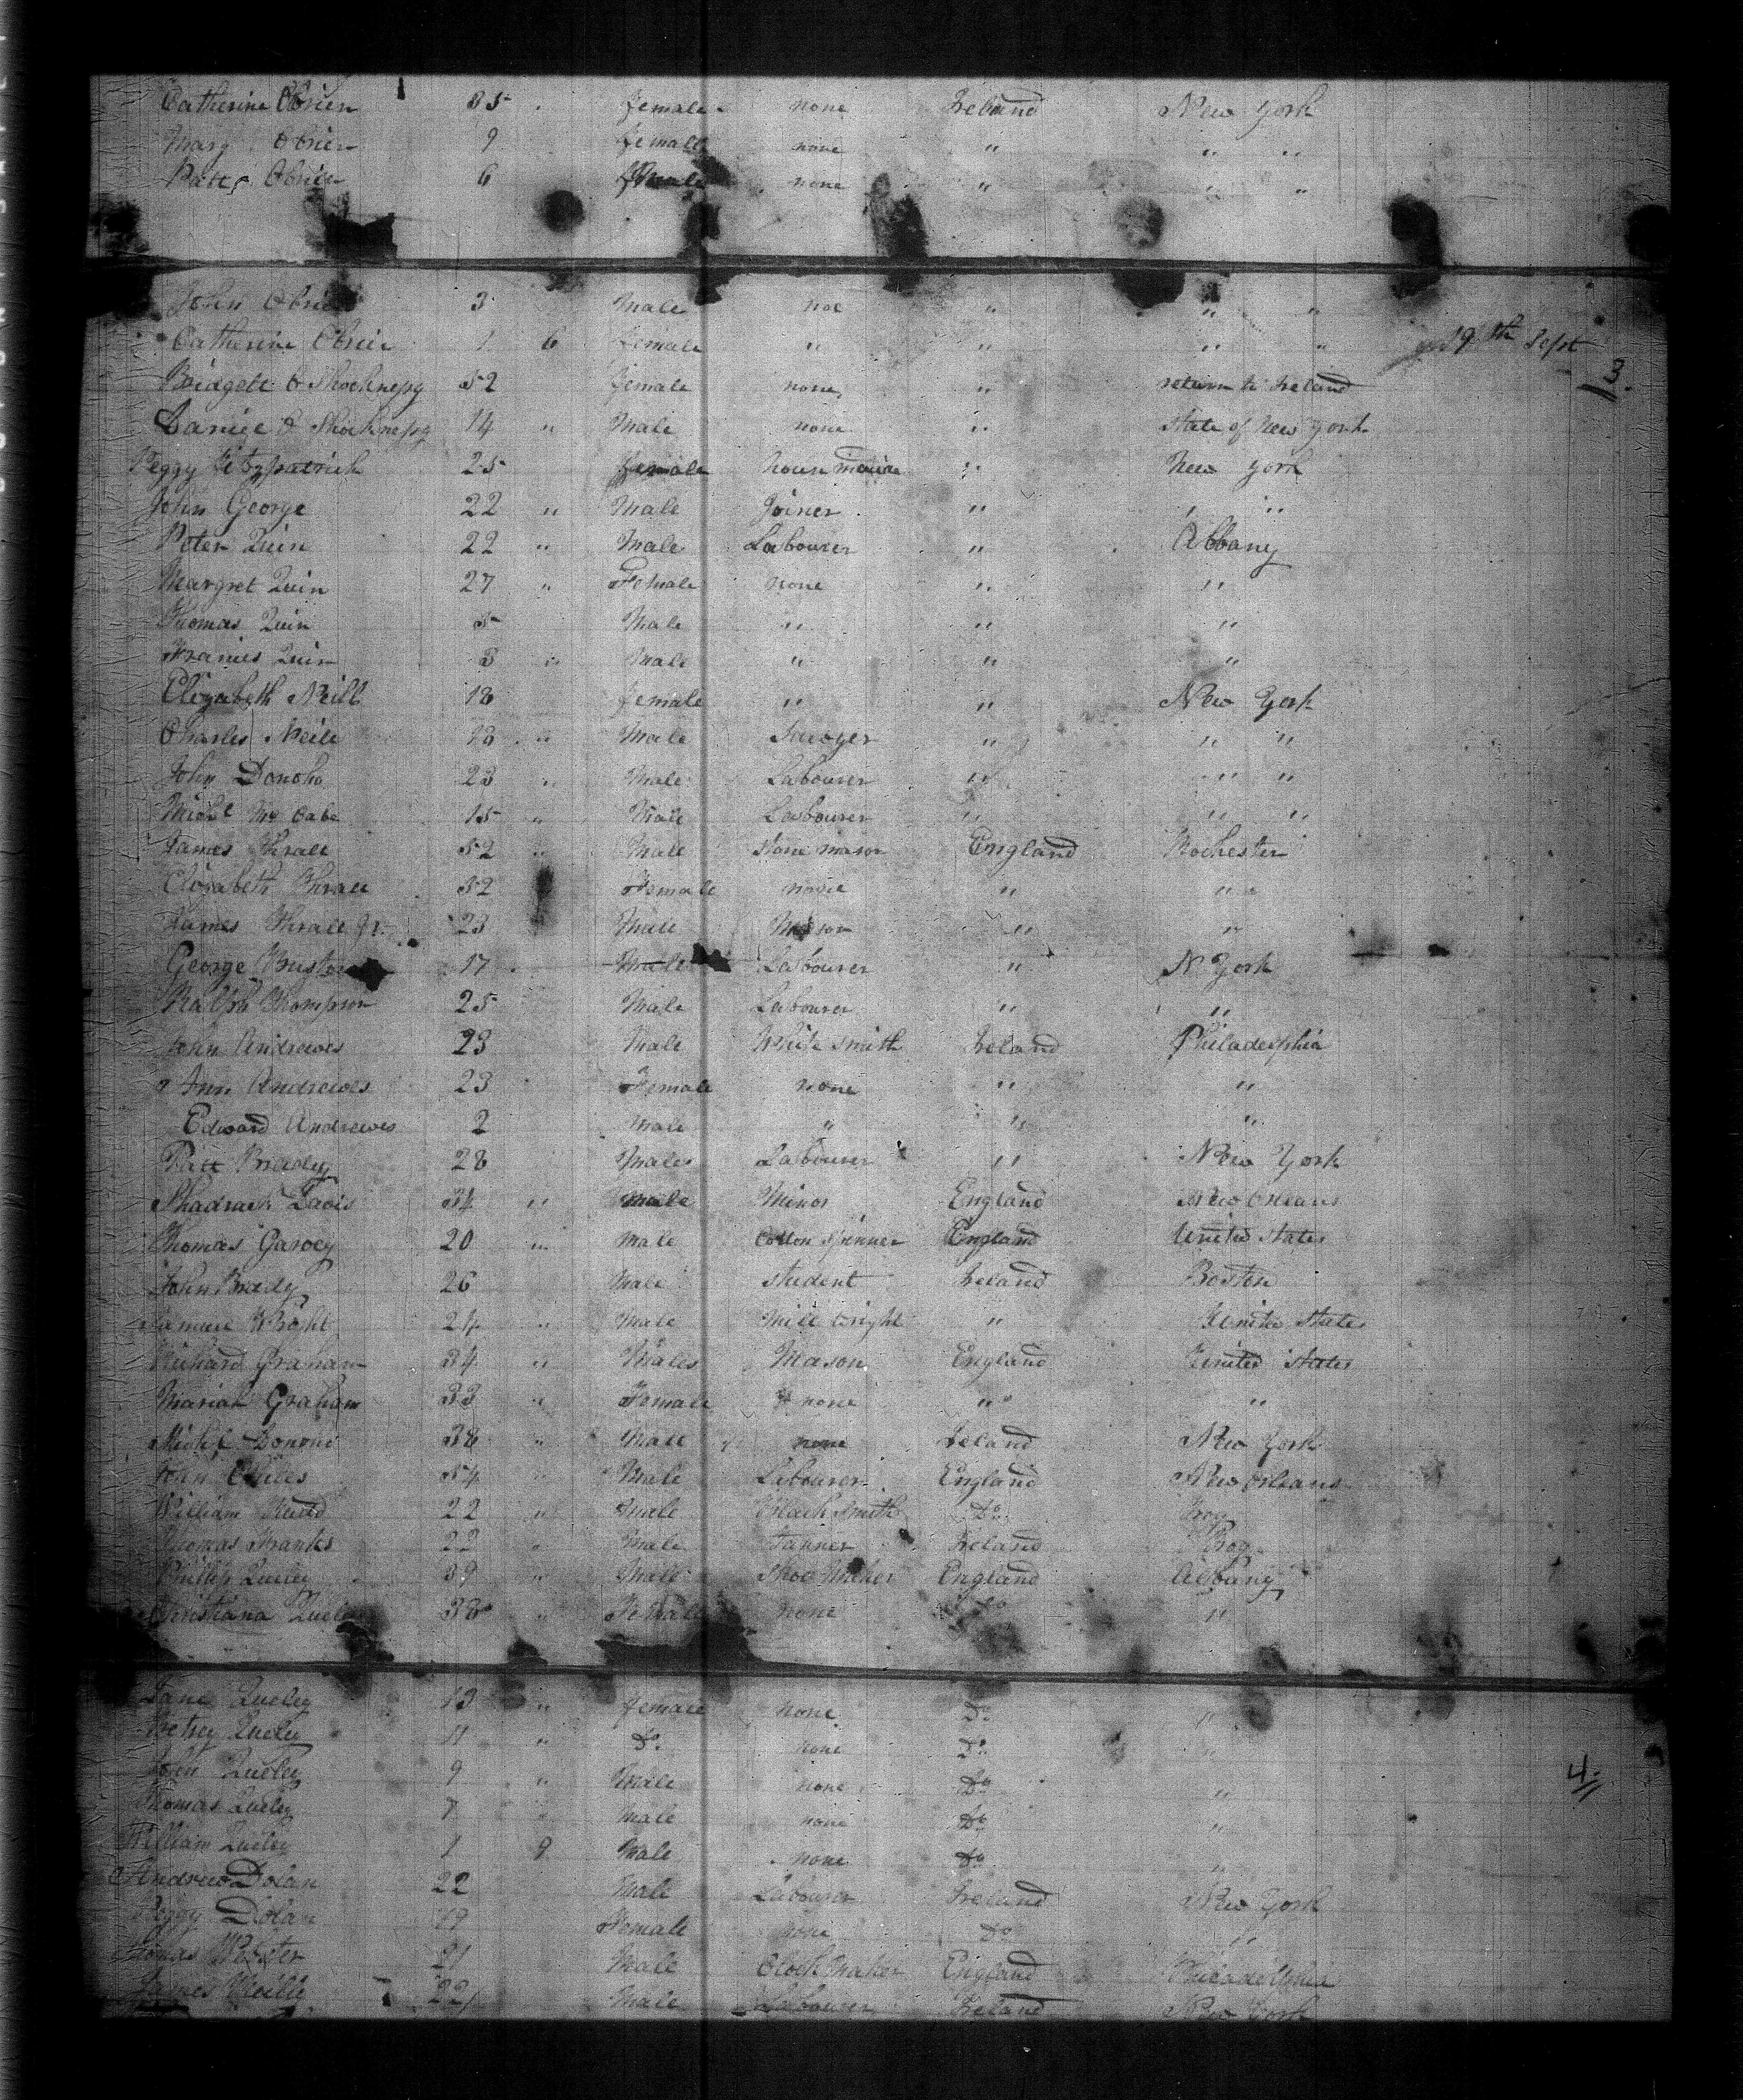 Catherine Obrien 35 " female none Ireland New York
Mary Obrien 9 female none " " "
Patt Obrien 6 Male none " " "
John Obrien 3 Male " " "
Catherine Obrien 1 6 female " " " "
19th Sept
3
Bridgett O Shocknessy 52 female none " return to Ireland
O Shocknessy 14 " Male none " state of New York
Peggy Fitzpatrick 25 female house " New York
John George 22 " Male Joiner " " "
Peter Quin 22 " Male Labourer " Albany
Margret Quin 27 " Female none " "
Thomas Quin 5 Male " " "
Quin 3 " Male " " "
Elizabeth Neill 18 female " " New York
Charles Neile " Male Sawyer " " "
John Donoho 23 " Male Labourer " " "
Michl Mc Cabe 15 " Male Labourer " " "
James Thrale 52 " Male Stone mason England Rochester
Elizabeth Thrale 52 Female none " "
James Thrale Jr. 23 Male Mason " "
George 17 Male Labourer " N York
Ralph Thompson 25 Male Labourer " "
John Andrewes 23 Male White smith Ireland Philadelphia
Ann Andrewes 23 Female none " "
Edward Andrewes 2 Male " " "
Patt Brady 28 Male Labourer " New York
Shadrach Davis 34 " male Minor England New Orleans
Thomas Garvey 20 " Male Cotton Spinner England United States
John Brady 26 Male Student Ireland Boston
24 " Male Mill wright " United States
Richard Graham 34 " Male Mason England United States
Mariah Graham 33 " Female none " "
Michl 38 " Male none Ireland New York
54 " Male Labourer England New Orleans
William 22 " Male Black Smith Do Troy
Thomas 22 " Male Tanner Ireland Troy
Phillip Queley 39 " Male Shoe Maker England Albany
Christiana Queley 38 " Female none Do "
Jane Queley 13 " female none Do "
Betsey Queley 11 " Do none Do "
4
John Queley 9 " Male none Do "
Thomas Queley 7 " Male none Do "
William Queley 1 9 Male none Do "
Andrew Dolan 22 Male Labourer Ireland New York
Peggy Dolan 19 Female none Do "
Thomas Webster 21 Male Clock Maker England Philadelphia
James 22 Male Labourer Ireland New York